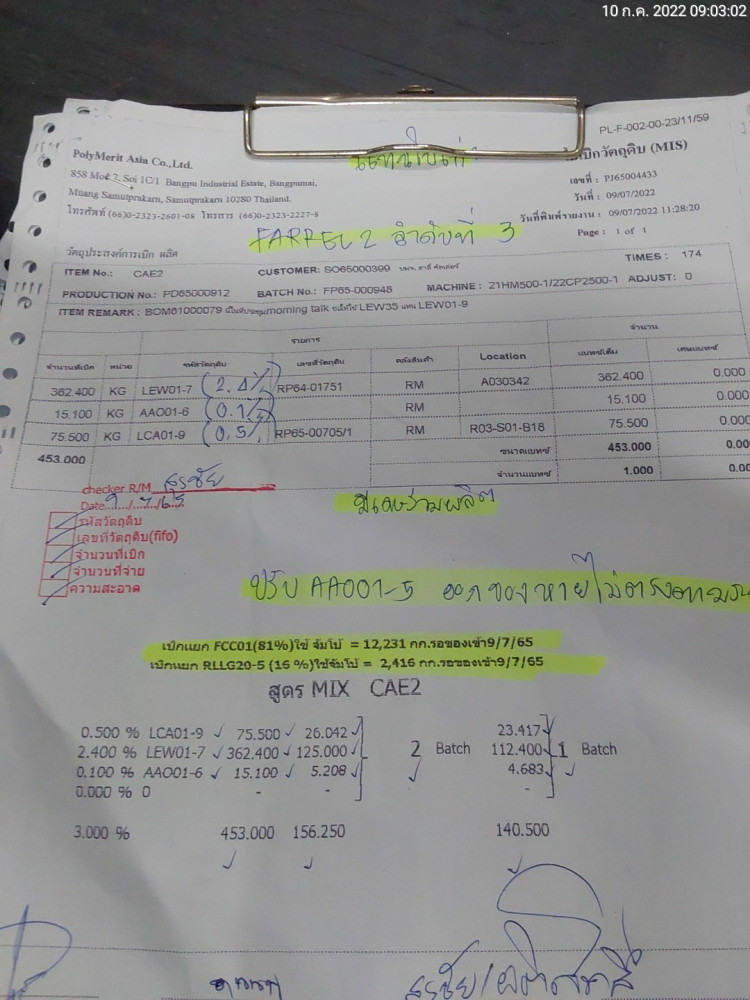 10 ก.ค. 2022 09:03:02
PL-F-002-00-23/11/59
PolyMerit Asia Co.,Ltd.
เบิกวัตถุดิบ (MIS)
858 Moo 2, Soi 1C/1 Bangpu Industrial Estate, Bangpumai,
เลขที่ : PJ65004433
Muang Samutprakarn, Samutprakarn 10280 Thailand.
วันที่ : 09/07/2022
โทรศัพท์ (66)0-2323-2601-08 โทรสาร (66)0-2323-2227-8
วันที่พิมพ์รายงาน : 09/07/2022 11:28:20
FARREL 2 ลำดับที่ 3
Page : 1 of 1
วัตถุประสงค์การเบิก ผลิต
ITEM No.: CAE2 CUSTOMER: SO65000399 TIMES : 174
PRODUCTION No.: PD65000912 BATCH No.: FP65-000948 MACHINE : 21HM500-1/22CP2500-1 ADJUST: 0
ITEM REMARK : BOM61000079 morning talk LEW35 แทน LEW01-9
รายการ จำนวน
จำนวนที่เบิก หน่วย รหัสวัตถุดิบ เลขที่วัตถุดิบ คลังสินค้า Location แบทซ์เต็ม เศษแบทซ์
362.400 KG LEW01-7 (2.4%) RP64-01751 RM A030342 362.400 0.000
15.100 KG AAO01-6 (0.1%) RM 15.100 0.000
75.500 KG LCA01-9 (0.5%) RP65-00705/1 RM R03-S01-B18 75.500 0.000
453.000 ขนาดแบทซ์ 453.000 0.00
จำนวนแบทซ์ 1.000 0.00
checker R/M สุรชัย
Date 9/7/65
รหัสวัตถุดิบ
เลขที่วัตถุดิบ(fifo)
จำนวนที่เบิก
จำนวนที่จ่าย
ความสะอาด
มีเศษร่วมผลิต
ปรับ AAO01-5 ออกของหายไม่ตรงตาม
เบิกแยก FCC01(81%)ใช้ จัมโบ้ = 12,231 กก.รอของเข้า9/7/65
เบิกแยก RLLG20-5 (16 %)ใช้จัมโบ้ = 2,416 กก.รอของเข้า9/7/65
สูตร MIX CAE2
0.500 % LCA01-9 75.500 26.042 23.417
2.400 % LEW01-7 362.400 125.000 2 Batch 112.400 1 Batch
0.100 % AAO01-6 15.100 5.208 4.683
0.000 % 0 - - -
3.000 % 453.000 156.250 140.500